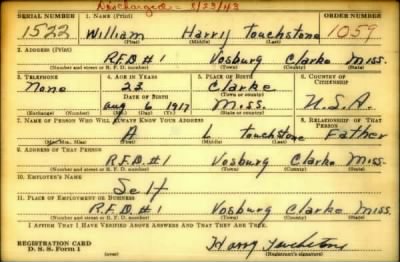 Discharged - 8/23/43
SERIAL NUMBER 1. NAME (Print) ORDER NUMBER
1522 William Harry Touchstone 1059
(First) (Middle) (Last)
2. ADDRESS (Print)
R.F.D. #1 Vosburg Clarke Miss.
(Number and street or R. F. D. number) (Town) (County) (State)
3. TELEPHONE 4. AGE IN YEARS 5. PLACE OF BIRTH 6. COUNTRY OF CITIZENSHIP
None 23 Clarke
DATE OF BIRTH (Town or county)
Aug 6 1917 Miss. U.S.A.
(Exchange) (Number) (Mo.) (Day) (Yr.) (State or country)
7. NAME OF PERSON WHO WILL ALWAYS KNOW YOUR ADDRESS 8. RELATIONSHIP OF THAT PERSON
A L Touchstone Father
(Mr., Mrs., Miss) (First) (Middle) (Last)
9. ADDRESS OF THAT PERSON
R.F.D. #1 Vosburg Clarke Miss.
(Number and street or R. F. D. number) (Town) (County) (State)
10. EMPLOYER'S NAME
Self
11. PLACE OF EMPLOYMENT OR BUSINESS
R.F.D. #1 Vosburg Clarke Miss.
(Number and street or R. F. D. number) (Town) (County) (State)
I AFFIRM THAT I HAVE VERIFIED ABOVE ANSWERS AND THAT THEY ARE TRUE.
REGISTRATION CARD
D. S. S. Form 1 (over) Harry Touchstone
(Registrant's signature)